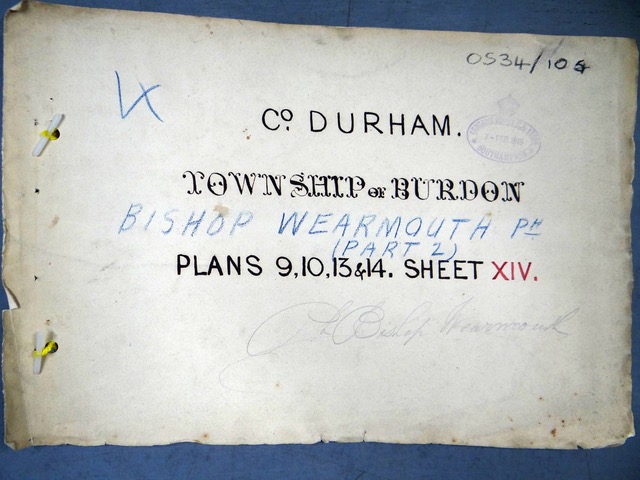 OS34/105
Cº DURHAM.
TOWNSHIP OF BURDON
BISHOP WEARMOUTH PH
(PART 2)
PLANS 9,10,13&14. SHEET XIV.
Bishop Wearmouth